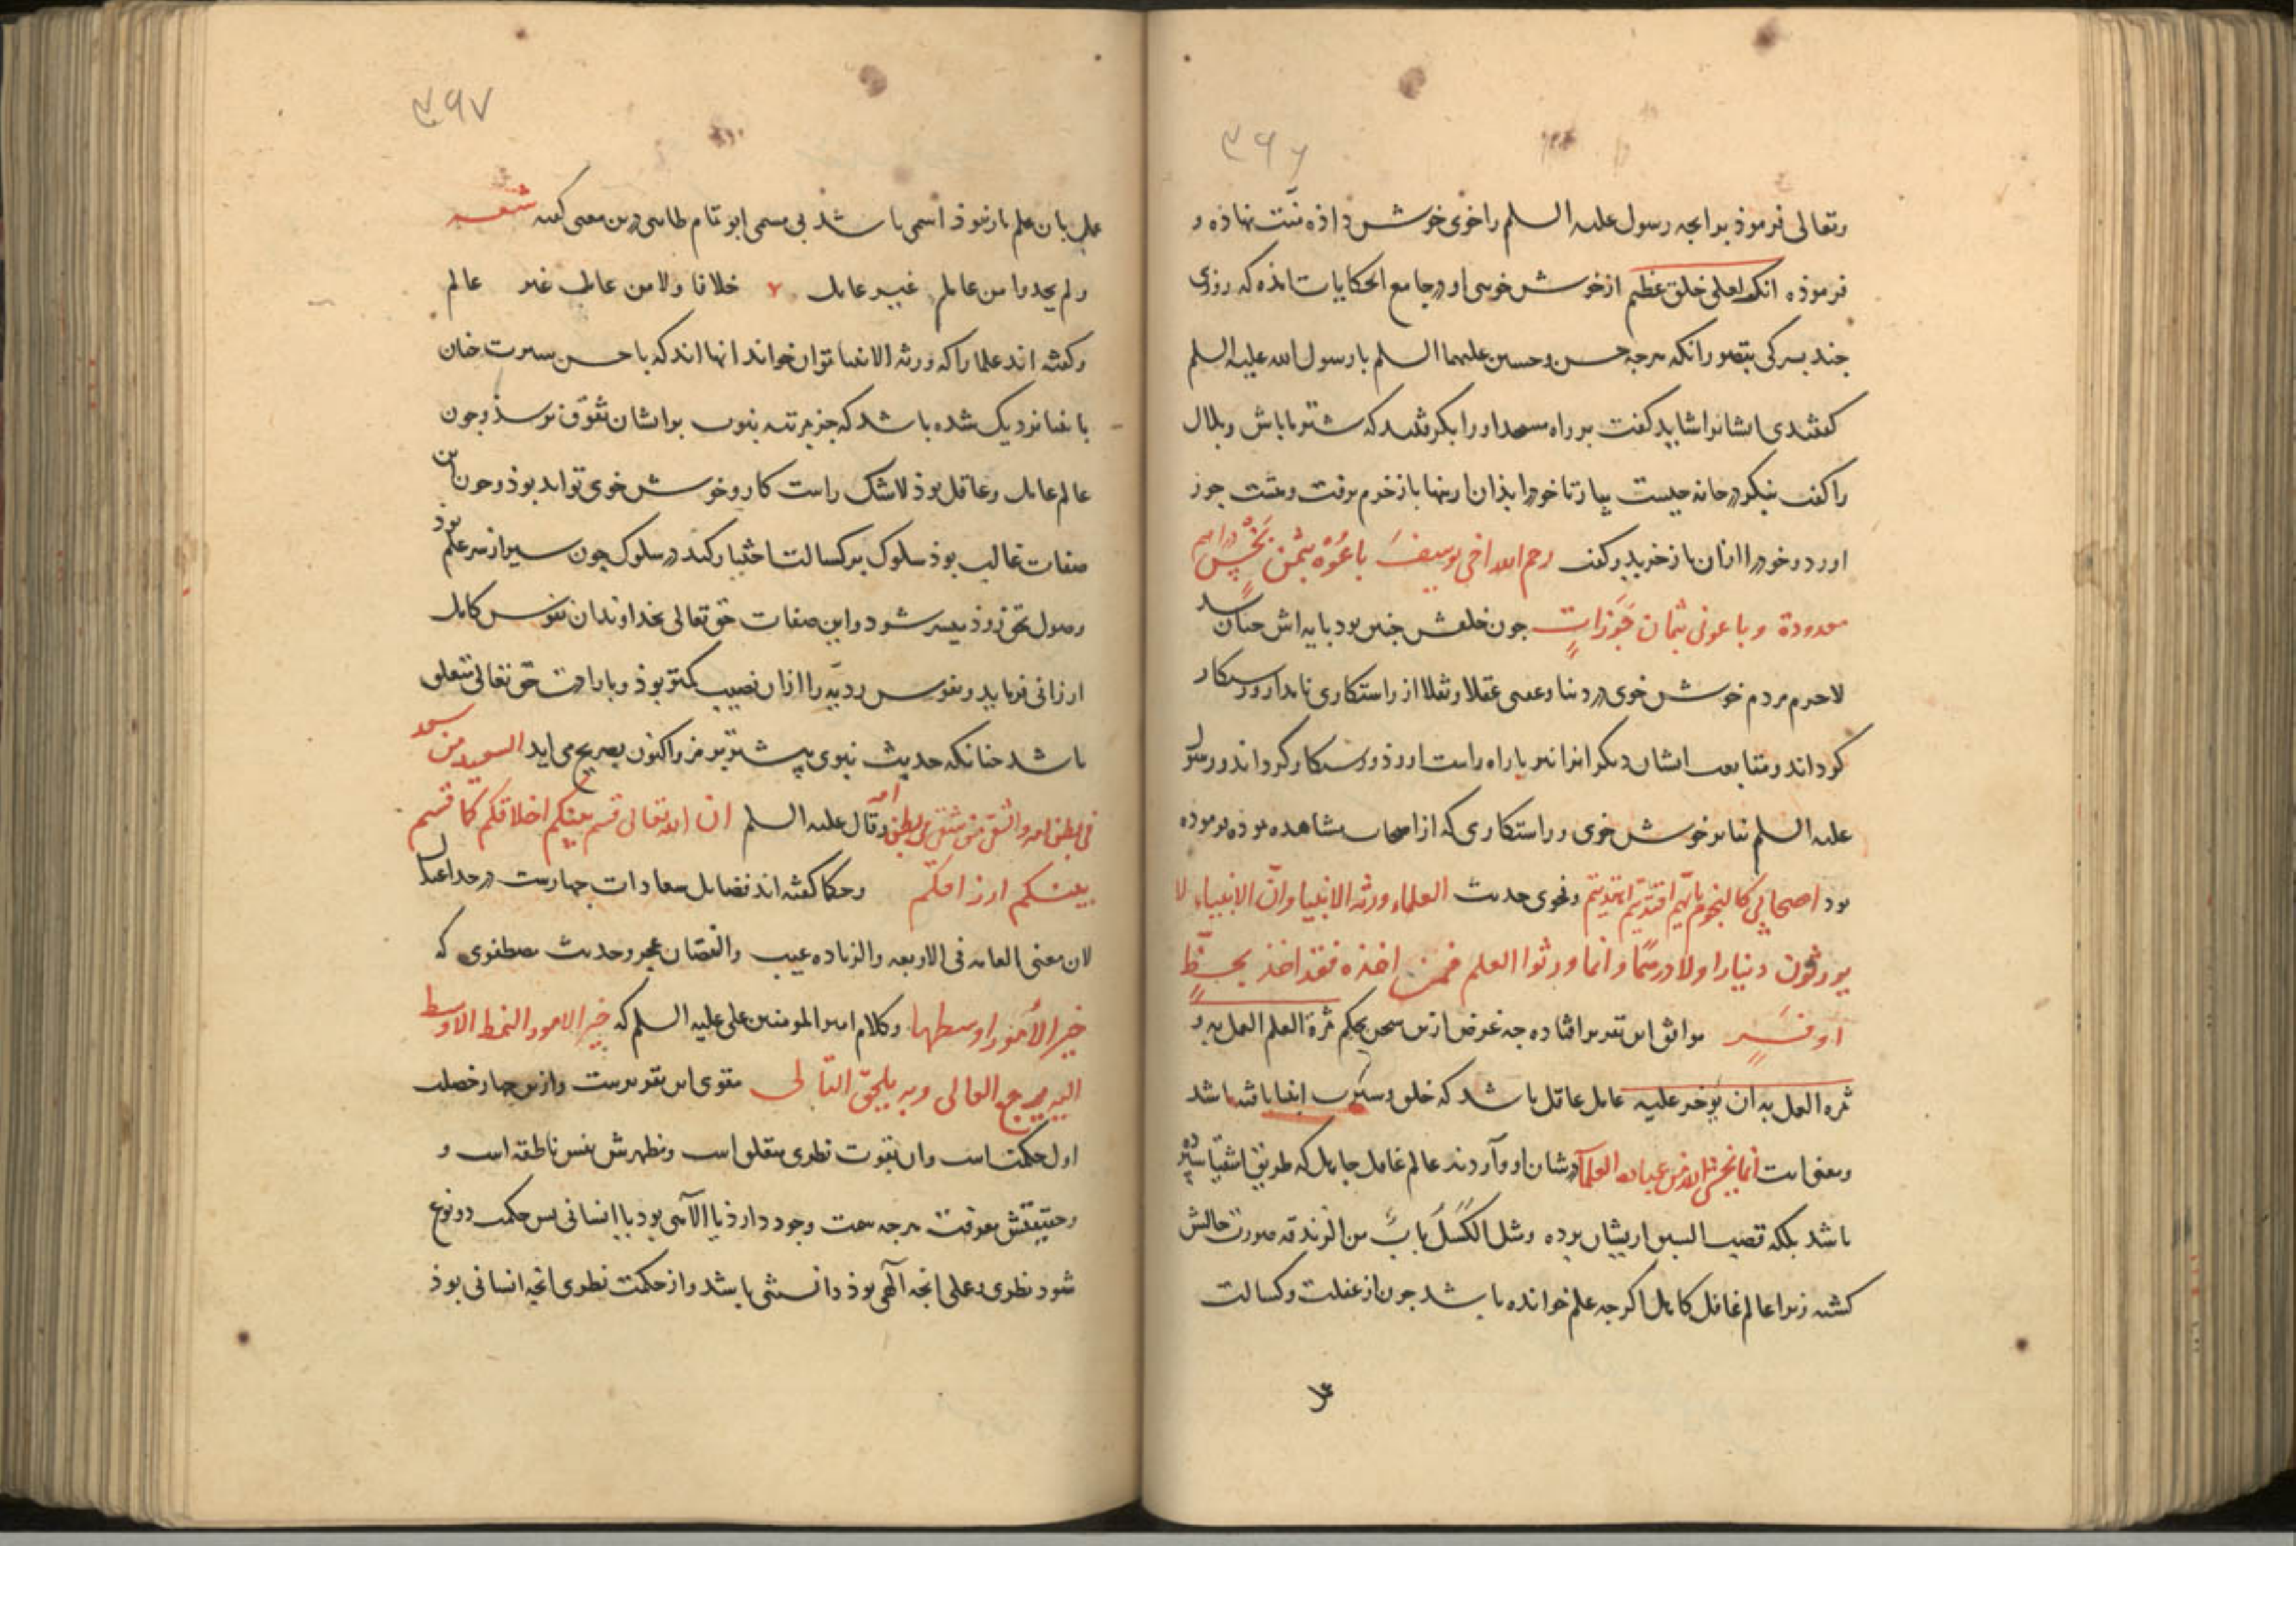 ۳۹۶
وتعالی فرموذ برانجه رسول علیه السلم را خوی خوش داذه منت نهاذه و
فرموذه انک لعلی خلق عظیم از خوش خویی او در جامع الحکایات اند که روزی
جند بسرکی بتصور انکه هرجه حسن و حسین علیهما السلم با رسول الله علیه السلم
کفتندی ایشانرا شاید کفت بر راه مسجد او را بکرفتند که شتر ما باش و بلال
را کفت بنکر در خانه جیست بیار تا خود را بذان ازینها باز خرم برفت و هشت جوز
اورد و خود را ازان باز خرید و کفت رحم الله اخی یوسف باعوه بثمن بخس دراهم
معدودة و باعونی بثمان جوزات جون خلقش جنین بود بایه اش جنان شد
لاجرم مردم خوش خوی در دنیا و عقبی عقلا و نقلا از راستکاری نامدار و رستکار
کرداند و متابعت ایشان دیکرانرا نیز با راه راست اورذ و رستکار کرداند و رسول
علیه السلم بنابر خوش خوی و راستکاری که از اصحاب مشاهده بوذه فرموده
بود اصحابی کالنجوم بایهم اقتدیتم اهتدیتم و فحوی حدیث العلماء ورثة الانبیا وان الانبیاء لا
یورثون دینارا ولا درهما وانما ورثوا العلم فمن اخذه فقد اخذ بحظ
اوفر موافق این تقریر افتاده جه غرض ازین سخن بحکم ثمرة العلم العمل به و
ثمره العمل به ان یوجر علیه عامل عاقل باشد که خلق و سیرت انبیا یافته باشد
ومعنی ایت انما یخشی الله من عباده العلماء در شان او وآردند عالم غافل جاهل که طریق اشقیا سپرده
باشد بلکه قصب السبق ازیشان برده ومثل الکسل باب من الزندقه صورت حالش
کشته زیرا عالم غافل کاهل اکرجه علم خوانده باشد جون از غفلت و کسالت
۳۹۷
عمل بان علم بار نبوذ اسمی باشد بی مسمی ابو تمام طایی درین معنی کفته شعر
ولم یحمدوا من عالم غیر عامل خلافا ولا من عامل غیر عالم
و کفته اند علما را که ورثه الانبیا توان خواند انها اند که با حسن سیرت جنان
بانبیا نزدیک شده باشد که جز مرتبه نبوت بر ایشان تفوق نرسد و جون
عالم عامل و عاقل بوذ لاشک راست کار و خوش خوی تواند بوذ و جون این
صفات غالب بوذ سلوک بر کسالت اختیار کند در سلوک جون سیر از سر علم بوذ
وصول بحق زوذ میسر شود و این صفات حق تعالی بخداوندان نفوس کامل
ارزانی فرماید و نفوس ردیه را ازان نصیب کمتر بوذ و بارادت حق تعالی متعلق
باشد جنانکه حدیث نبوی پیشتر برمز و اکنون بصریح می اید السعید من سعد
فی بطن امه والشقی من شقی فی بطن امه و قال علیه السلم ان الله تعالی قسم بینکم اخلاقکم کما قسم
بینکم ارزاقکم و حکما کفته اند فضایل سعادات جهارست در حد اعتدال
لان معنی العامه فی الاربعه والزیاده عیب والنقصان عجز و حدیث مصطفوی که
خیر الامور اوسطها و کلام امیر المومنین علی علیه السلم که خیر الامور النمط الاوسط
الیه یرجع العالی وبه یلحق التالی مقوی این تقریرست و ازین جهار خصلت
اول حکمتست و ان بقوت نظری متعلق است و مظهرش نفس ناطقه است و
وحقیقتش معرفت هرجه سمت وجود دارذ یا الاهی بود یا انسانی بس حکمت دو نوع
شود نظری و عملی انجه الهی بوذ دانستنی باشد و از حکمت نظری انجه انسانی بوذ